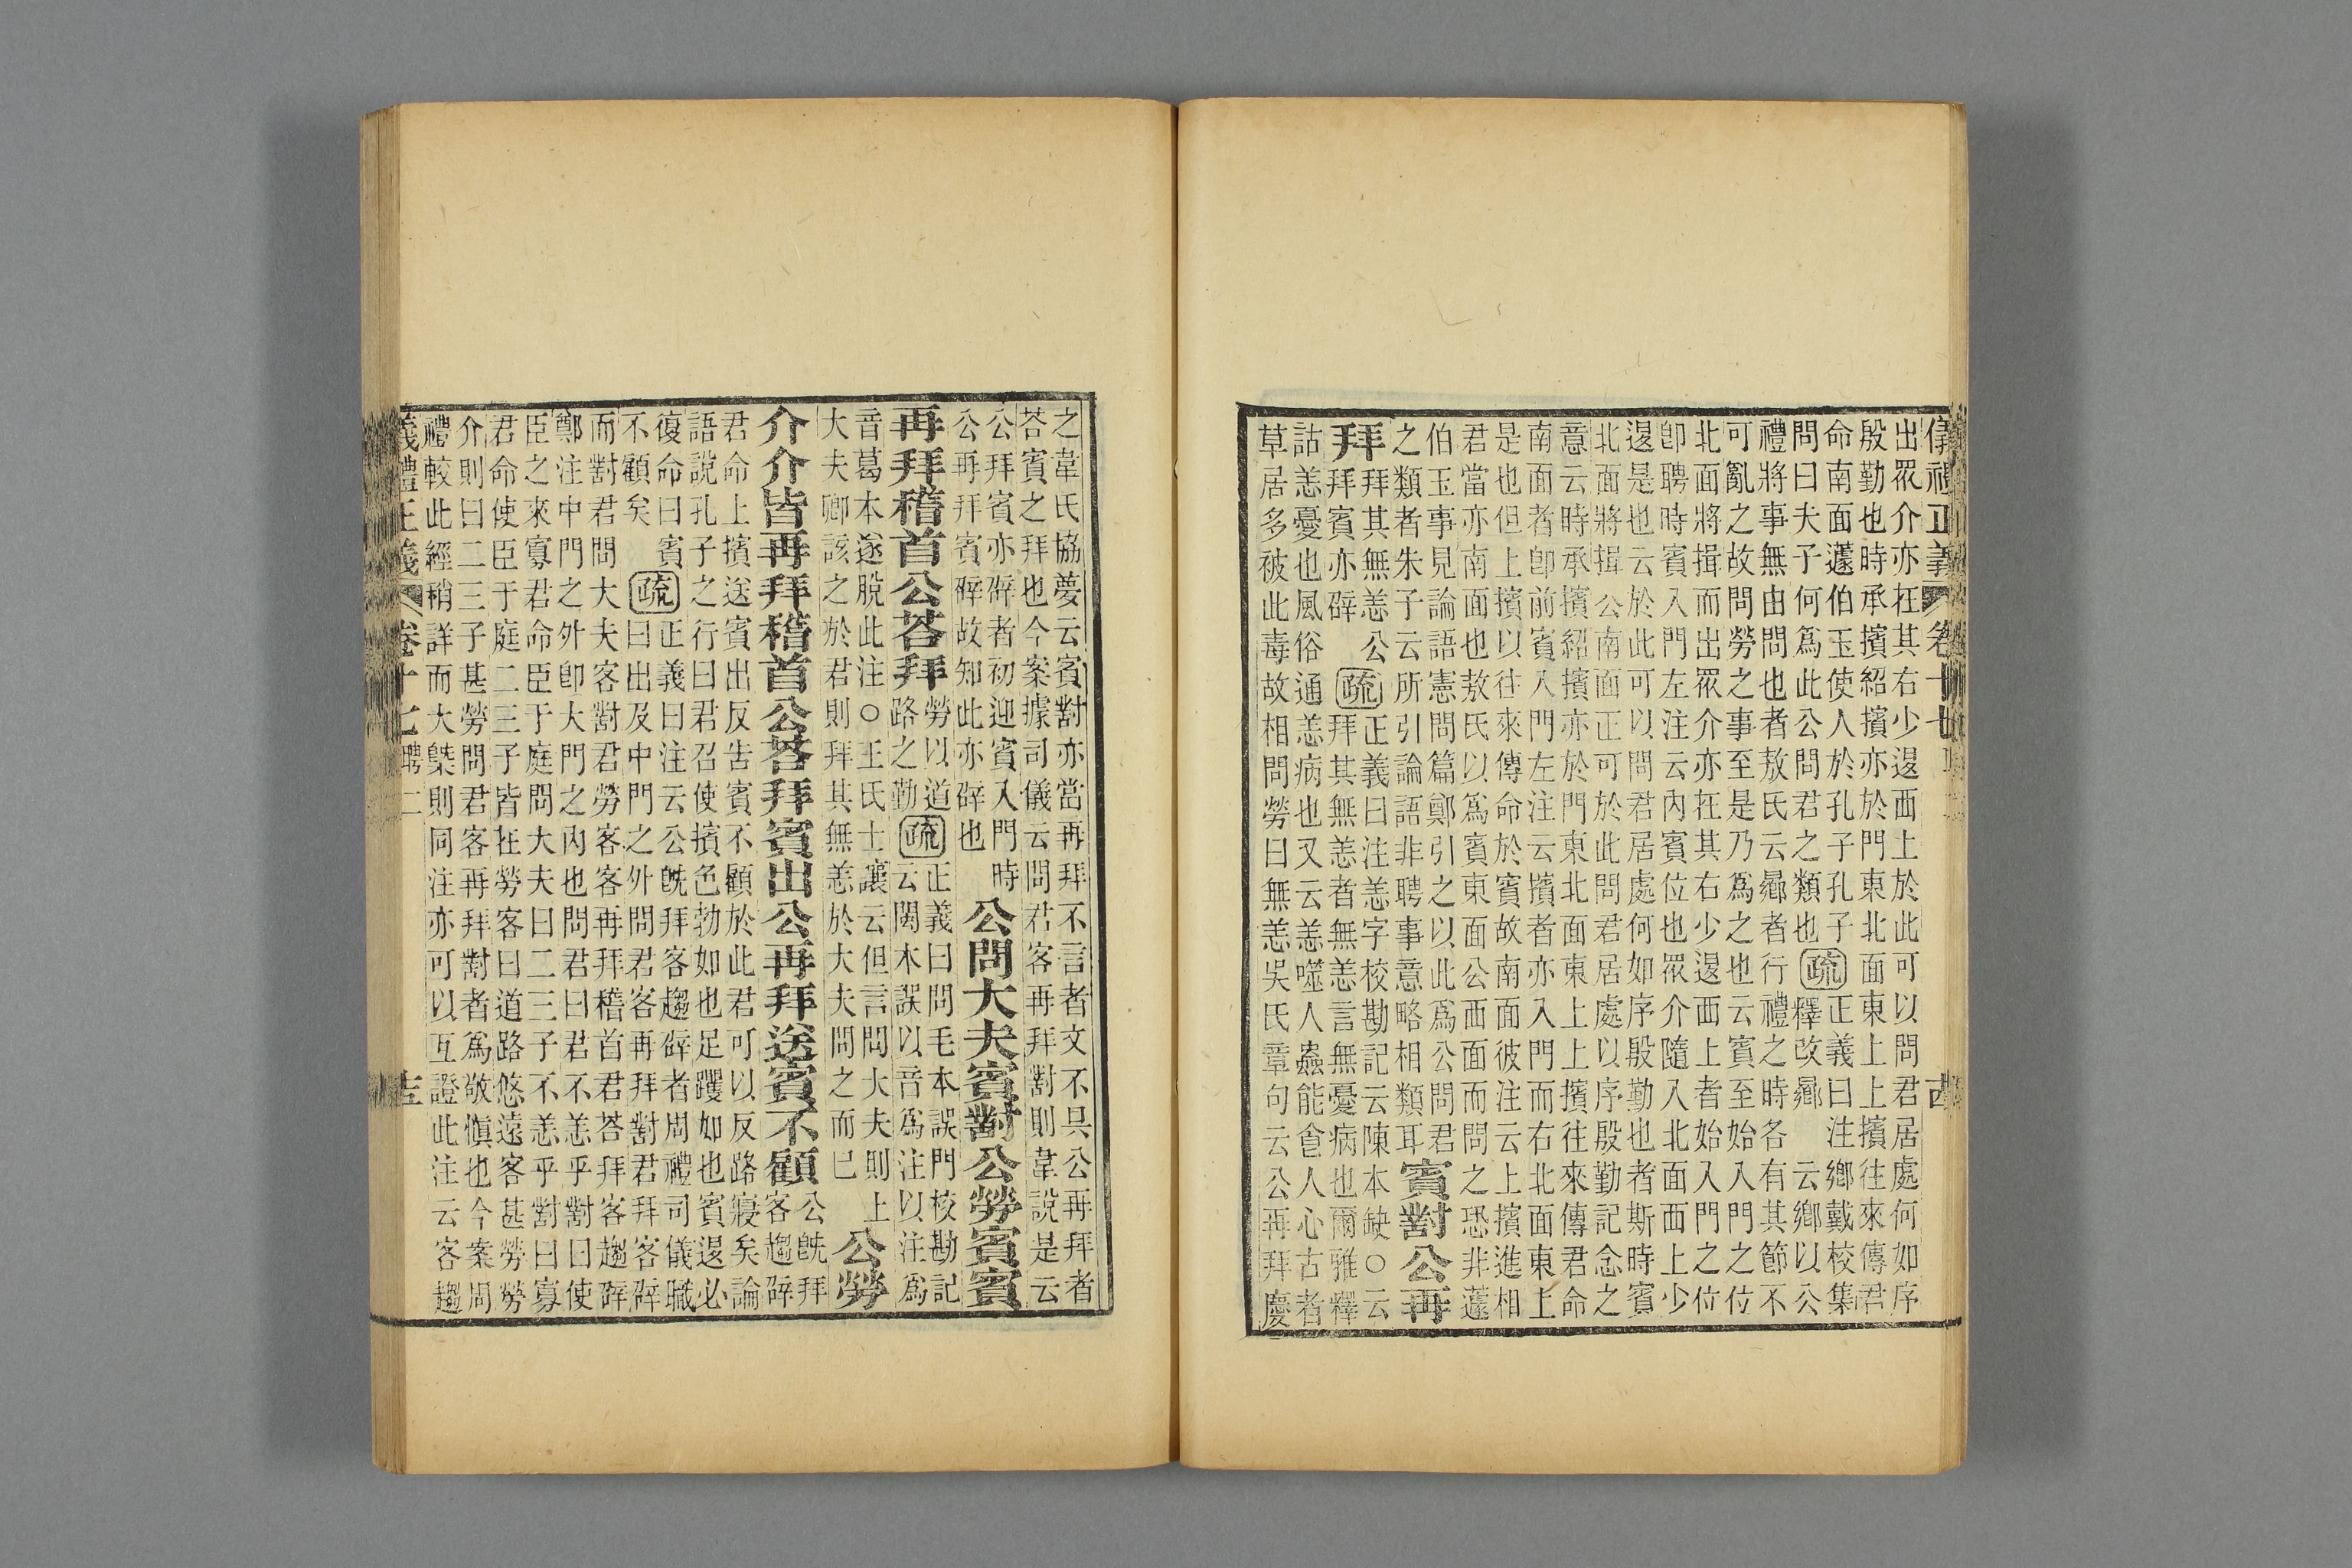 儀禮正義 卷十七 聘二
出眾介亦在其右少退西上於此可以問君居處何如序
殷勤也時承擯紹擯亦於門東北面東上上擯往來傳君
命南面蘧伯玉使人於孔子孔子
問曰夫子何爲此公問君之類也
疏
正義曰注鄉戴校集
釋改曏 云鄉以公
禮將事無由問也者敖氏云曏者行禮之時各有其節不
可亂之故問勞之事至是乃爲之也云賓至始入門之位
北面將揖而出眾介亦在其右少退西上者始入門之位
卽聘時賓入門左注云內賓位也眾介隨入北面西上少
退是也云於此可以問君居處何如序殷勤也者斯時賓
北面將揖公南面正可於此問君居處以序殷勤記念之
意云時承擯紹擯亦於門東北面東上上擯往來傳君命
南面者卽前賓入門左注云擯者亦入門而右北面東上
是也但上擯以往來傳命於賓故南面彼注云上擯進相
君當亦南面也敖氏以爲賓東面公西面而問之恐非蘧
伯玉事見論語憲問篇鄭引之以此爲公問君
之類者朱子云所引論語非聘事意略相類耳
賓對公再
拜
拜其無恙公
拜賓亦辟
疏
正義曰注恙字校勘記云陳本缺○云
拜其無恙者無恙言無憂病也爾雅釋
詁恙憂也風俗通恙病也又云恙噬人蟲能食人心古者
草居多被此毒故相問勞曰無恙吳氏章句云公再拜慶
之韋氏協夢云賓對亦當再拜不言者文不具公再拜者
荅賓之拜也今案據司儀云問君客再拜對則韋說是云
公拜賓亦辟者初迎賓入門時
公再拜賓辟故知此亦辟也
公問大夫賓對公勞賓賓
再拜稽首公荅拜
勞以道
路之勤
疏
正義曰問毛本誤門校勘記
云閩本誤以音爲注以注爲
音葛本遂脫此注○王氏士讓云但言問大夫則上
大夫卿該之於君則拜其無恙於大夫問之而已
公勞
介介皆再拜稽首公荅拜賓出公再拜送賓不顧
公旣拜
客趨辟
君命上擯送賓出反告賓不顧於此君可以反路寢矣論
語說孔子之行曰君召使擯色勃如也足躩如也賓退必
復命曰賓
不顧矣
疏
正義曰注云公旣拜客趨辟者周禮司儀職
曰出及中門之外問君客再拜對君拜客辟
而對君問大夫客對君勞客客再拜稽首君荅拜客趨辟
鄭注中門之外卽大門之內也問君曰君不恙乎對曰使
臣之來寡君命臣于庭問大夫曰二三子不恙乎對曰寡
君命使臣于庭二三子皆在勞客曰道路悠遠客甚勞勞
介則曰二三子甚勞問君客再拜對者爲敬愼也今案周
禮較此經稍詳而大槩則同注亦可以互證此注云客趨